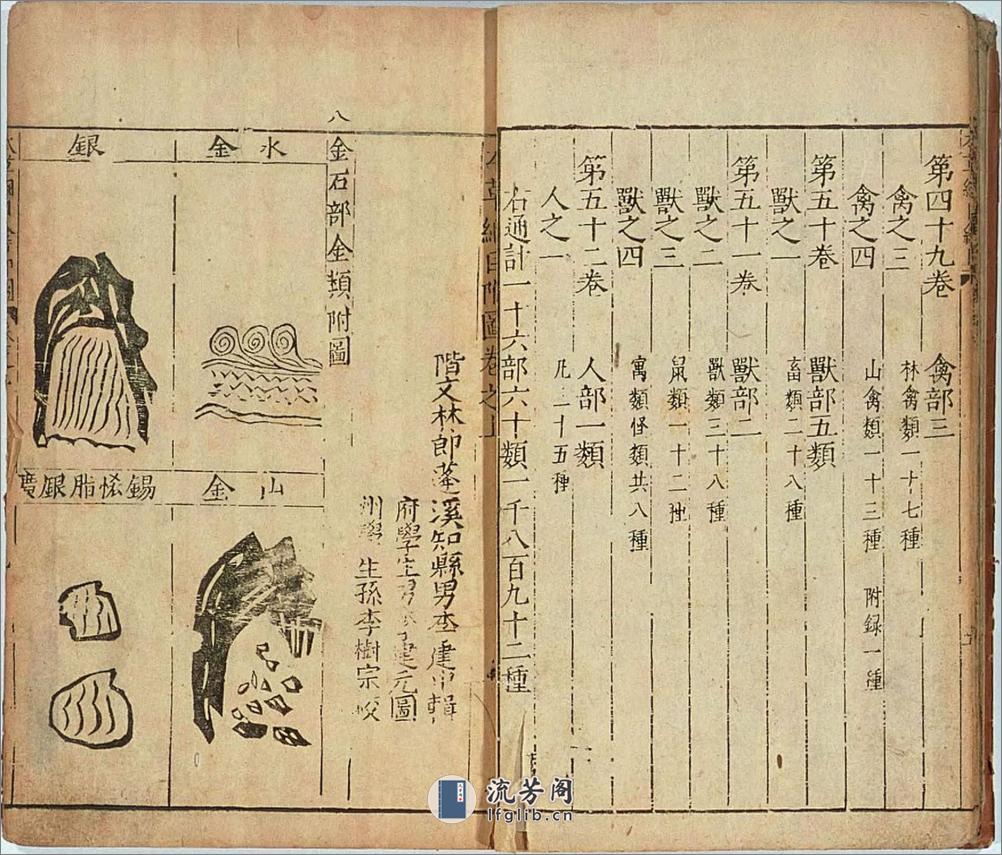 第四十九卷 禽部三
禽之三 林禽類一十七種
禽之四 山禽類一十三種 附録一種
第五十卷 獸部五類
獸之一 畜類二十八種
第五十一卷 獸部二
獸之二 獸類三十八種
獸之三 鼠類一十二種
獸之四 寓類怪類共八種
第五十二卷 人部一類
人之一 凡二十五種
右通計一十六部六十類一千八百九十二種
本草綱目附圖卷之上
階文林郎蓬溪知縣男李建中輯
府學生男李建元圖
州學生孫李樹宗校
金石部金類附圖
八
水金
銀
山金
錫恡脂銀礦
流芳阁
lfglib.cn